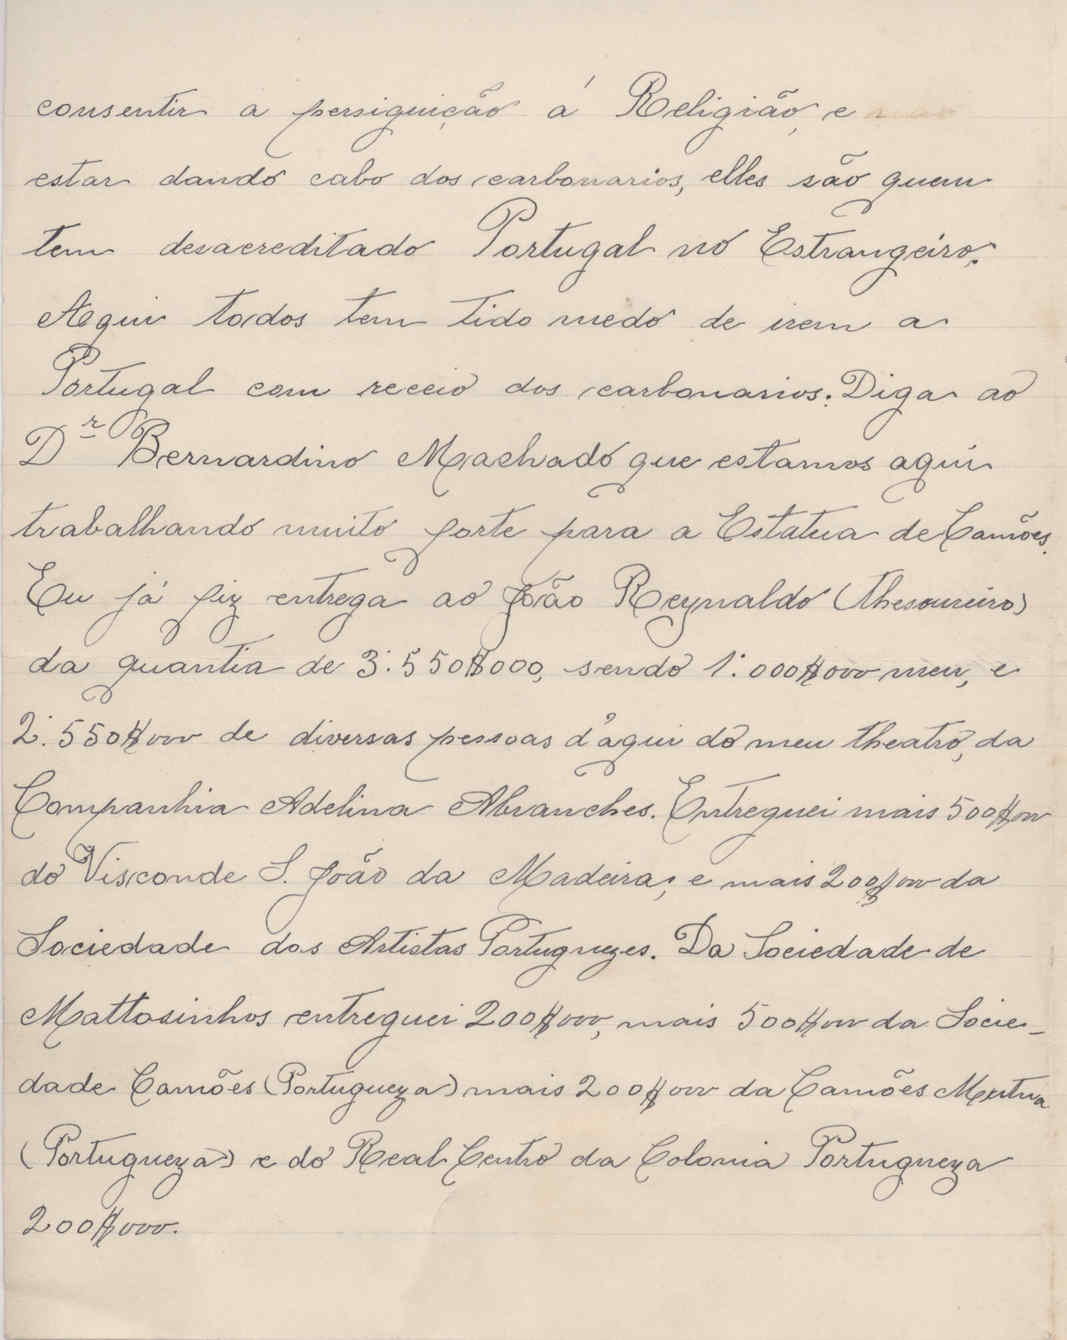 consentir a persiguição á Religião, e
estar dando cabo dos carbonarios, elles são quem
tem desacreditado Portugal no Estrangeiro.
Aqui todos tem tido medo de irem a
Portugal com receio dos carbonarios. Diga ao
Dr Bernardino Machado que estamos aqui
trabalhando muito forte para a Estatua de Camões.
Eu já fiz entrega ao João Reynaldo (Thesoureiro)
da quantia de 3:550$000, sendo 1:000$000 meu, e
2:550$000 de diversas pessoas d'aqui do meu theatro, da
Companhia Adelina Abranches. Entreguei mais 500$000
do Visconde S. João da Madeira; e mais 200$000 da
Sociedade dos Artistas Portuguezes. Da Sociedade de
Mattosinhos entreguei 200$000, mais 500$000 da Socie-
dade Camões (Portugueza) mais 200$000 da Camões Mutua
(Portugueza) e do Real Centro da Colonia Portugueza
200$000.